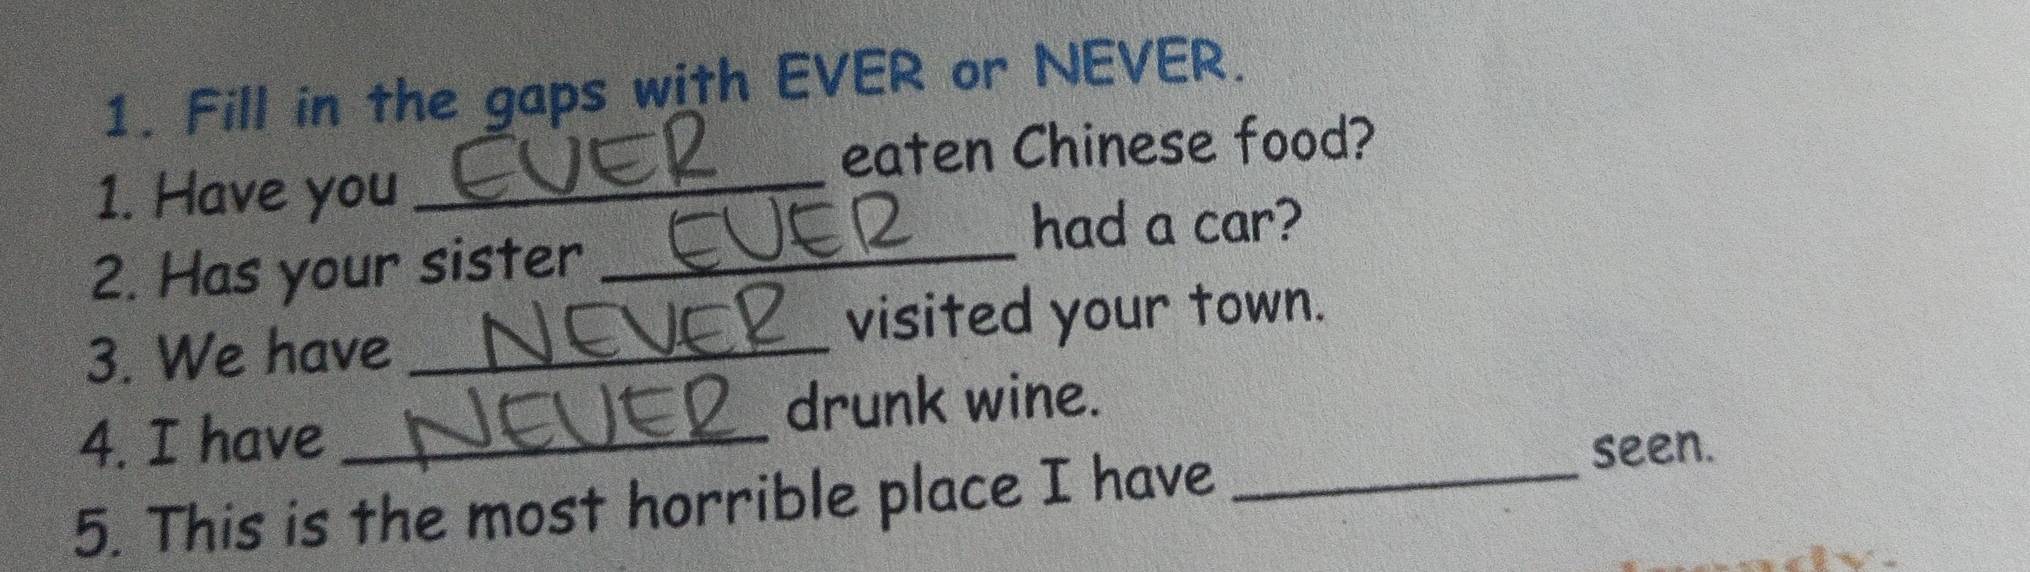 1. Fill in the gaps with EVER or NEVER.
1. Have you EVER eaten Chinese food?
2. Has your sister EVER had a car?
3. We have NEVER visited your town.
4. I have NEVER drunk wine.
5. This is the most horrible place I have __________ seen.